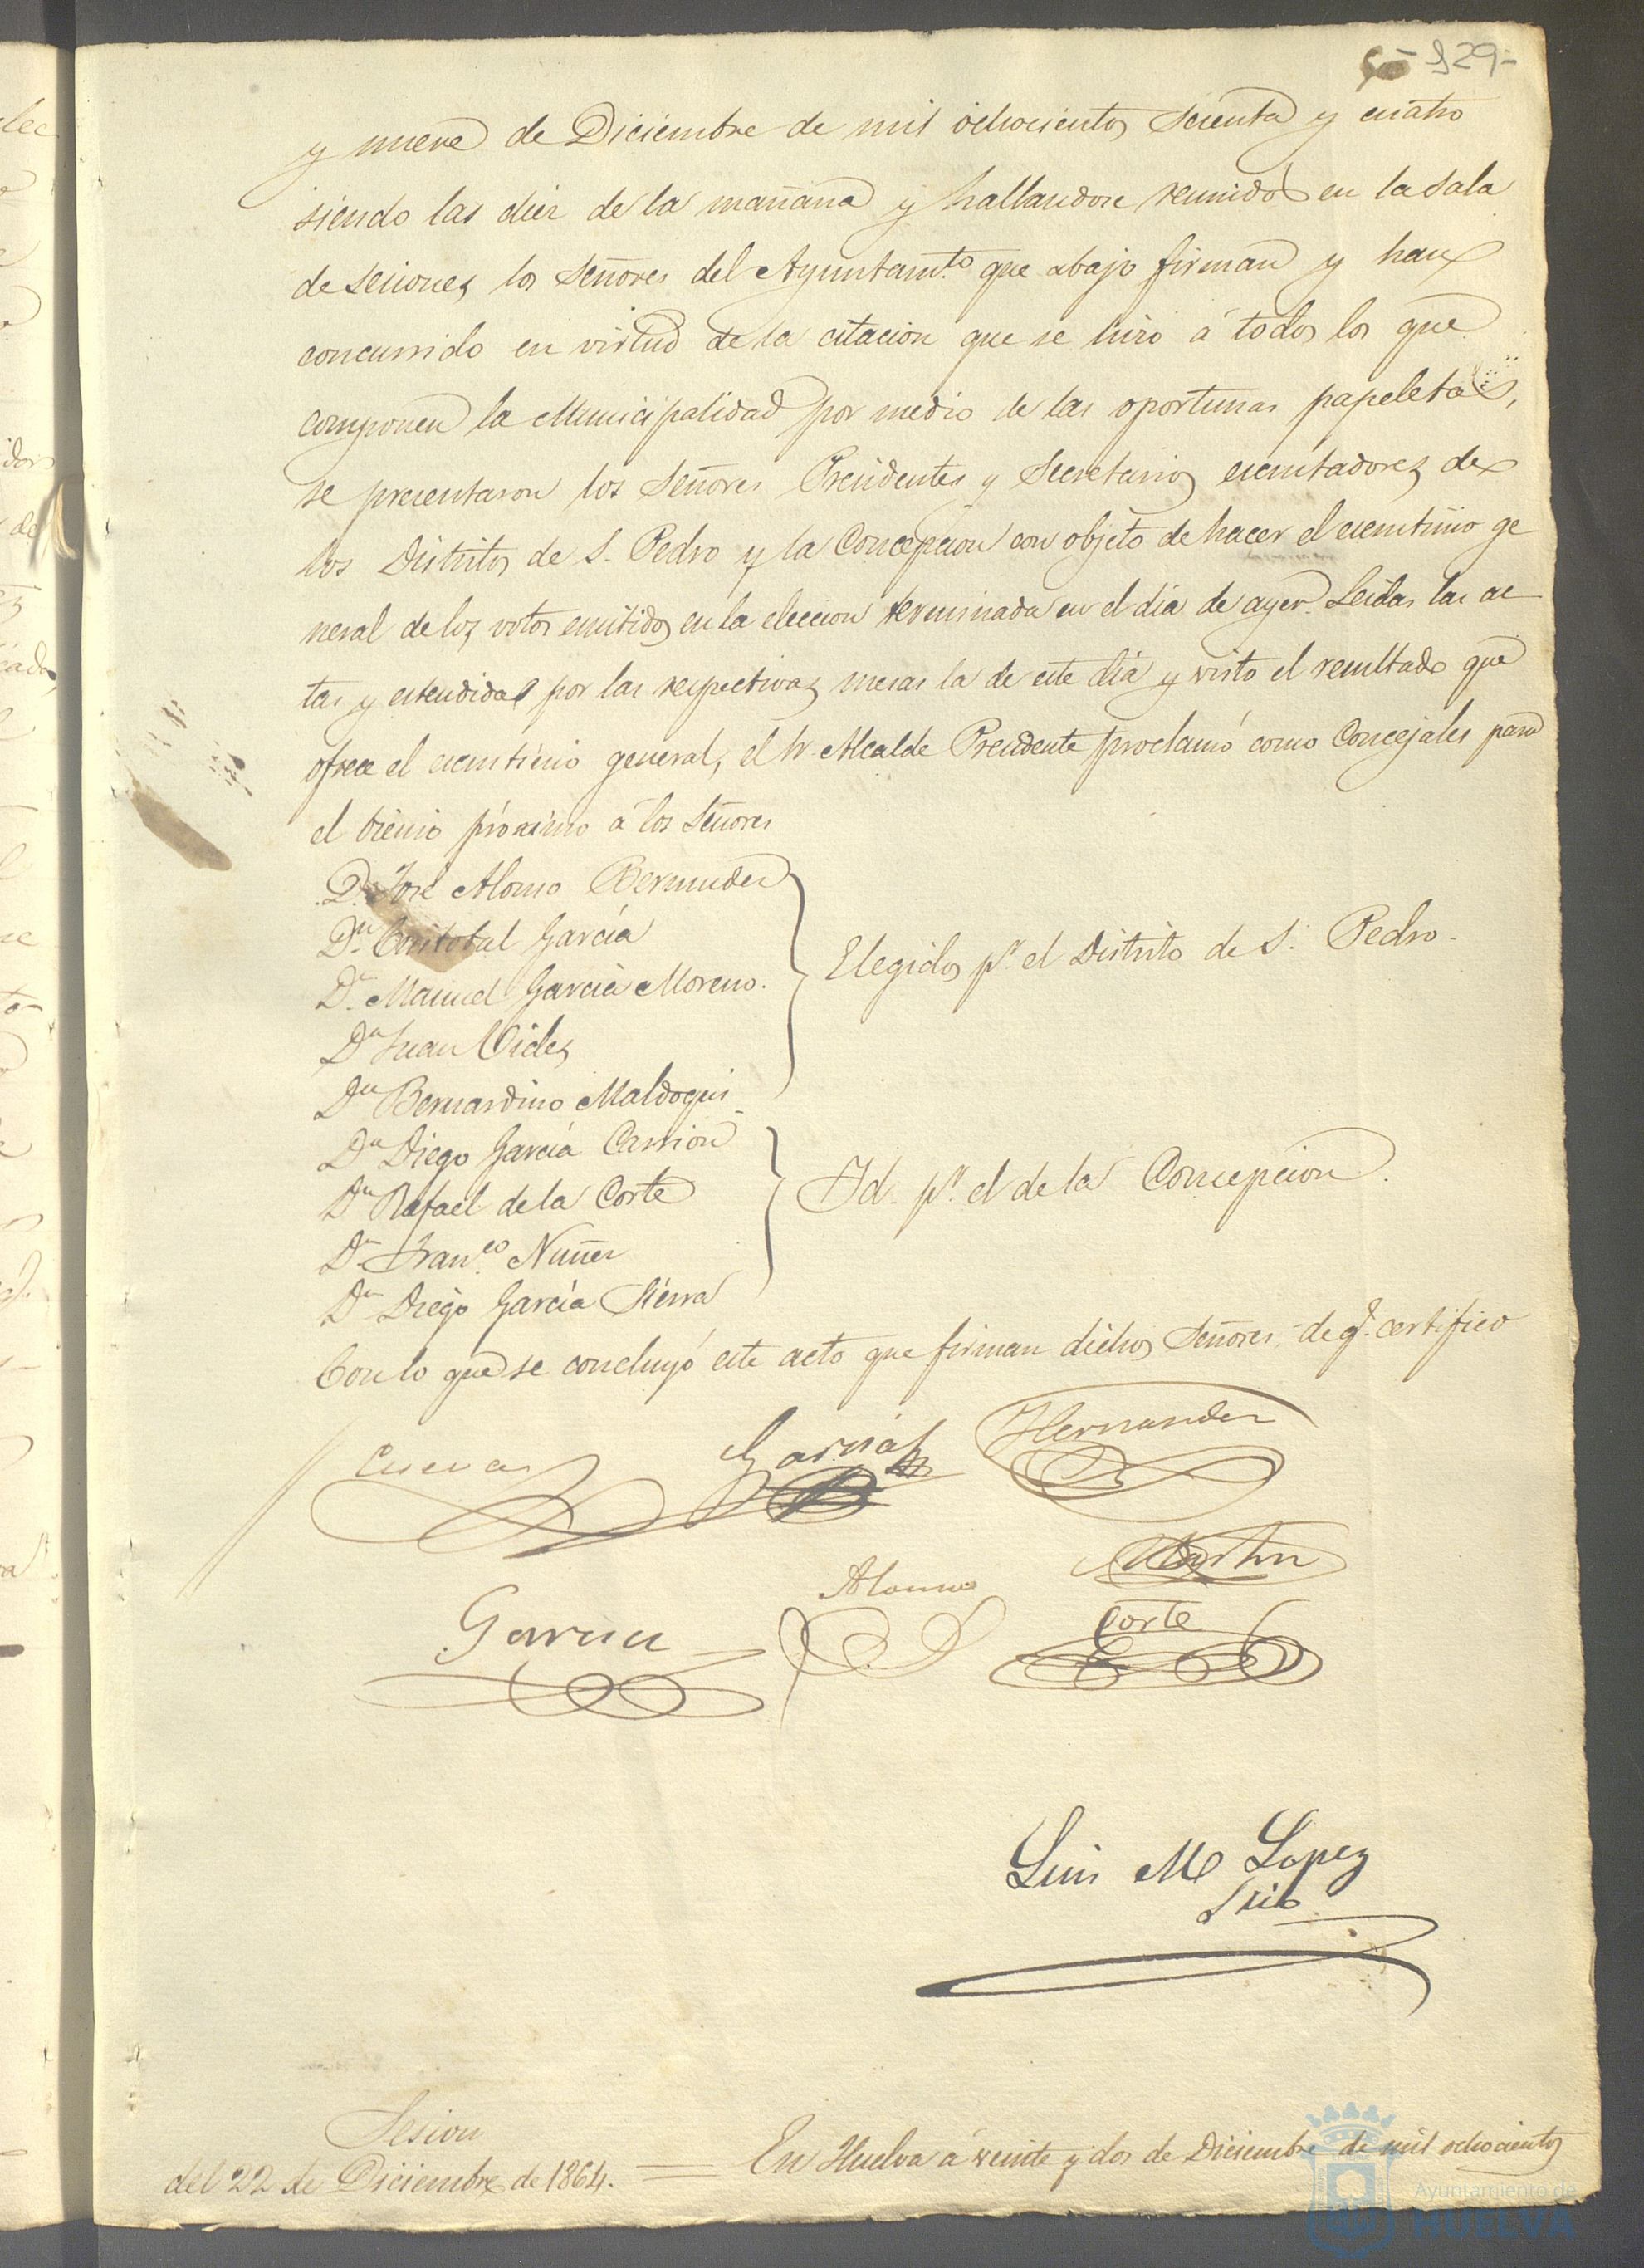 129-
y nueve de Diciembre de mil ochocientos sesenta y cuatro
siendo las diez de la mañana y hallandose reunidos en la sala
de sesiones los Señores del Ayuntamto. que abajo firman y han
concurrido en virtud de la citacion que se hizo á todos los que
componen la Municipalidad por medio de las oportunas papeletas,
se presentaron los Señores Presidentes y Secretarios escrutadores de
los Distritos de S. Pedro y la Concepcion con objeto de hacer el escrutinio ge
neral de los votos emitidos en la eleccion terminada en el dia de ayer. Leidas las ac
tas y estendidas por las respectivas mesas la de este dia y visto el resultado que
ofrece el escrutinio general, el Sr. Alcalde Presidente proclamó como Concejales para
el bienio próximo á los Señores
Dn. José Alonso Bermudez
Dn. Cristobal García
Dn. Manuel García Moreno.
Dn Juan Vides
Dn Bernardino Maldoqui
Elegidos pr. el Distrito de S. Pedro.
Dn Diego García Carrion
Dn Rafael de la Corte
Dn Franco. Nuñez
Dn Diego García Sierra
Id. pr. el de la Concepcion.
Con lo que se concluyó este acto que firman dichos Señores, de q. certifico
Cuevas
García
Hernandez
Martin
Garcia
Alonso
Corte
Luis M Lopez
Srio
Sesion
del 22 de Diciembre de 1864. = En Huelva á veinte y dos de Diciembre de mil ochocientos
Ayuntamiento de
HUELVA